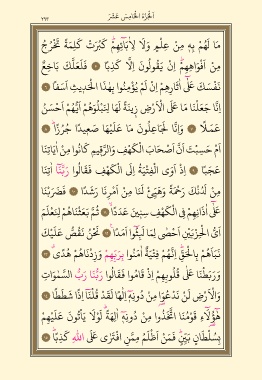 اَلْجُزْءُ الْخَامِسَ عَشَرَ
٢٩٣
مَا لَهُمْ بِهِ مِنْ عِلْمٍ وَلَا لِاٰبَٓائِهِمْۜ كَبُرَتْ كَلِمَةً تَخْرُجُ
مِنْ اَفْوَاهِهِمْۜ اِنْ يَقُولُونَ اِلَّا كَذِبًا ۞ فَلَعَلَّكَ بَاخِعٌ
نَفْسَكَ عَلٰٓى اٰثَارِهِمْ اِنْ لَمْ يُؤْمِنُوا بِهٰذَا الْحَدِيثِ اَسَفًا ۞
اِنَّا جَعَلْنَا مَا عَلَى الْاَرْضِ زِينَةً لَهَا لِنَبْلُوَهُمْ اَيُّهُمْ اَحْسَنُ
عَمَلًا ۞ وَاِنَّا لَجَاعِلُونَ مَا عَلَيْهَا صَعِيدًا جُرُزًاۜ ۞
اَمْ حَسِبْتَ اَنَّ اَصْحَابَ الْكَهْفِ وَالرَّقِيمِ كَانُوا مِنْ اٰيَاتِنَا
عَجَبًا ۞ اِذْ اَوَى الْفِتْيَةُ اِلَى الْكَهْفِ فَقَالُوا رَبَّنَٓا اٰتِنَا
مِنْ لَدُنْكَ رَحْمَةً وَهَيِّئْ لَنَا مِنْ اَمْرِنَا رَشَدًا ۞ فَضَرَبْنَا
عَلٰٓى اٰذَانِهِمْ فِي الْكَهْفِ سِنِينَ عَدَدًاۙ ۞ ثُمَّ بَعَثْنَاهُمْ لِنَعْلَمَ
اَيُّ الْحِزْبَيْنِ اَحْصٰى لِمَا لَبِثُٓوا اَمَدًا۟ ۞ نَحْنُ نَقُصُّ عَلَيْكَ
نَبَاَهُمْ بِالْحَقِّۜ اِنَّهُمْ فِتْيَةٌ اٰمَنُوا بِرَبِّهِمْ وَزِدْنَاهُمْ هُدًىۗ ۞
وَرَبَطْنَا عَلٰى قُلُوبِهِمْ اِذْ قَامُوا فَقَالُوا رَبُّنَا رَبُّ السَّمٰوَاتِ
وَالْاَرْضِ لَنْ نَدْعُوَ۬ا مِنْ دُونِه۪ٓ اِلٰهًا لَقَدْ قُلْنَٓا اِذًا شَطَطًا ۞
هٰٓؤُ۬لَٓاءِ قَوْمُنَا اتَّخَذُوا مِنْ دُونِه۪ٓ اٰلِهَةًۜ لَوْلَا يَأْتُونَ عَلَيْهِمْ
بِسُلْطَانٍ بَيِّنٍۜ فَمَنْ اَظْلَمُ مِمَّنِ افْتَرٰى عَلَى اللّٰهِ كَذِبًاۜ ۞